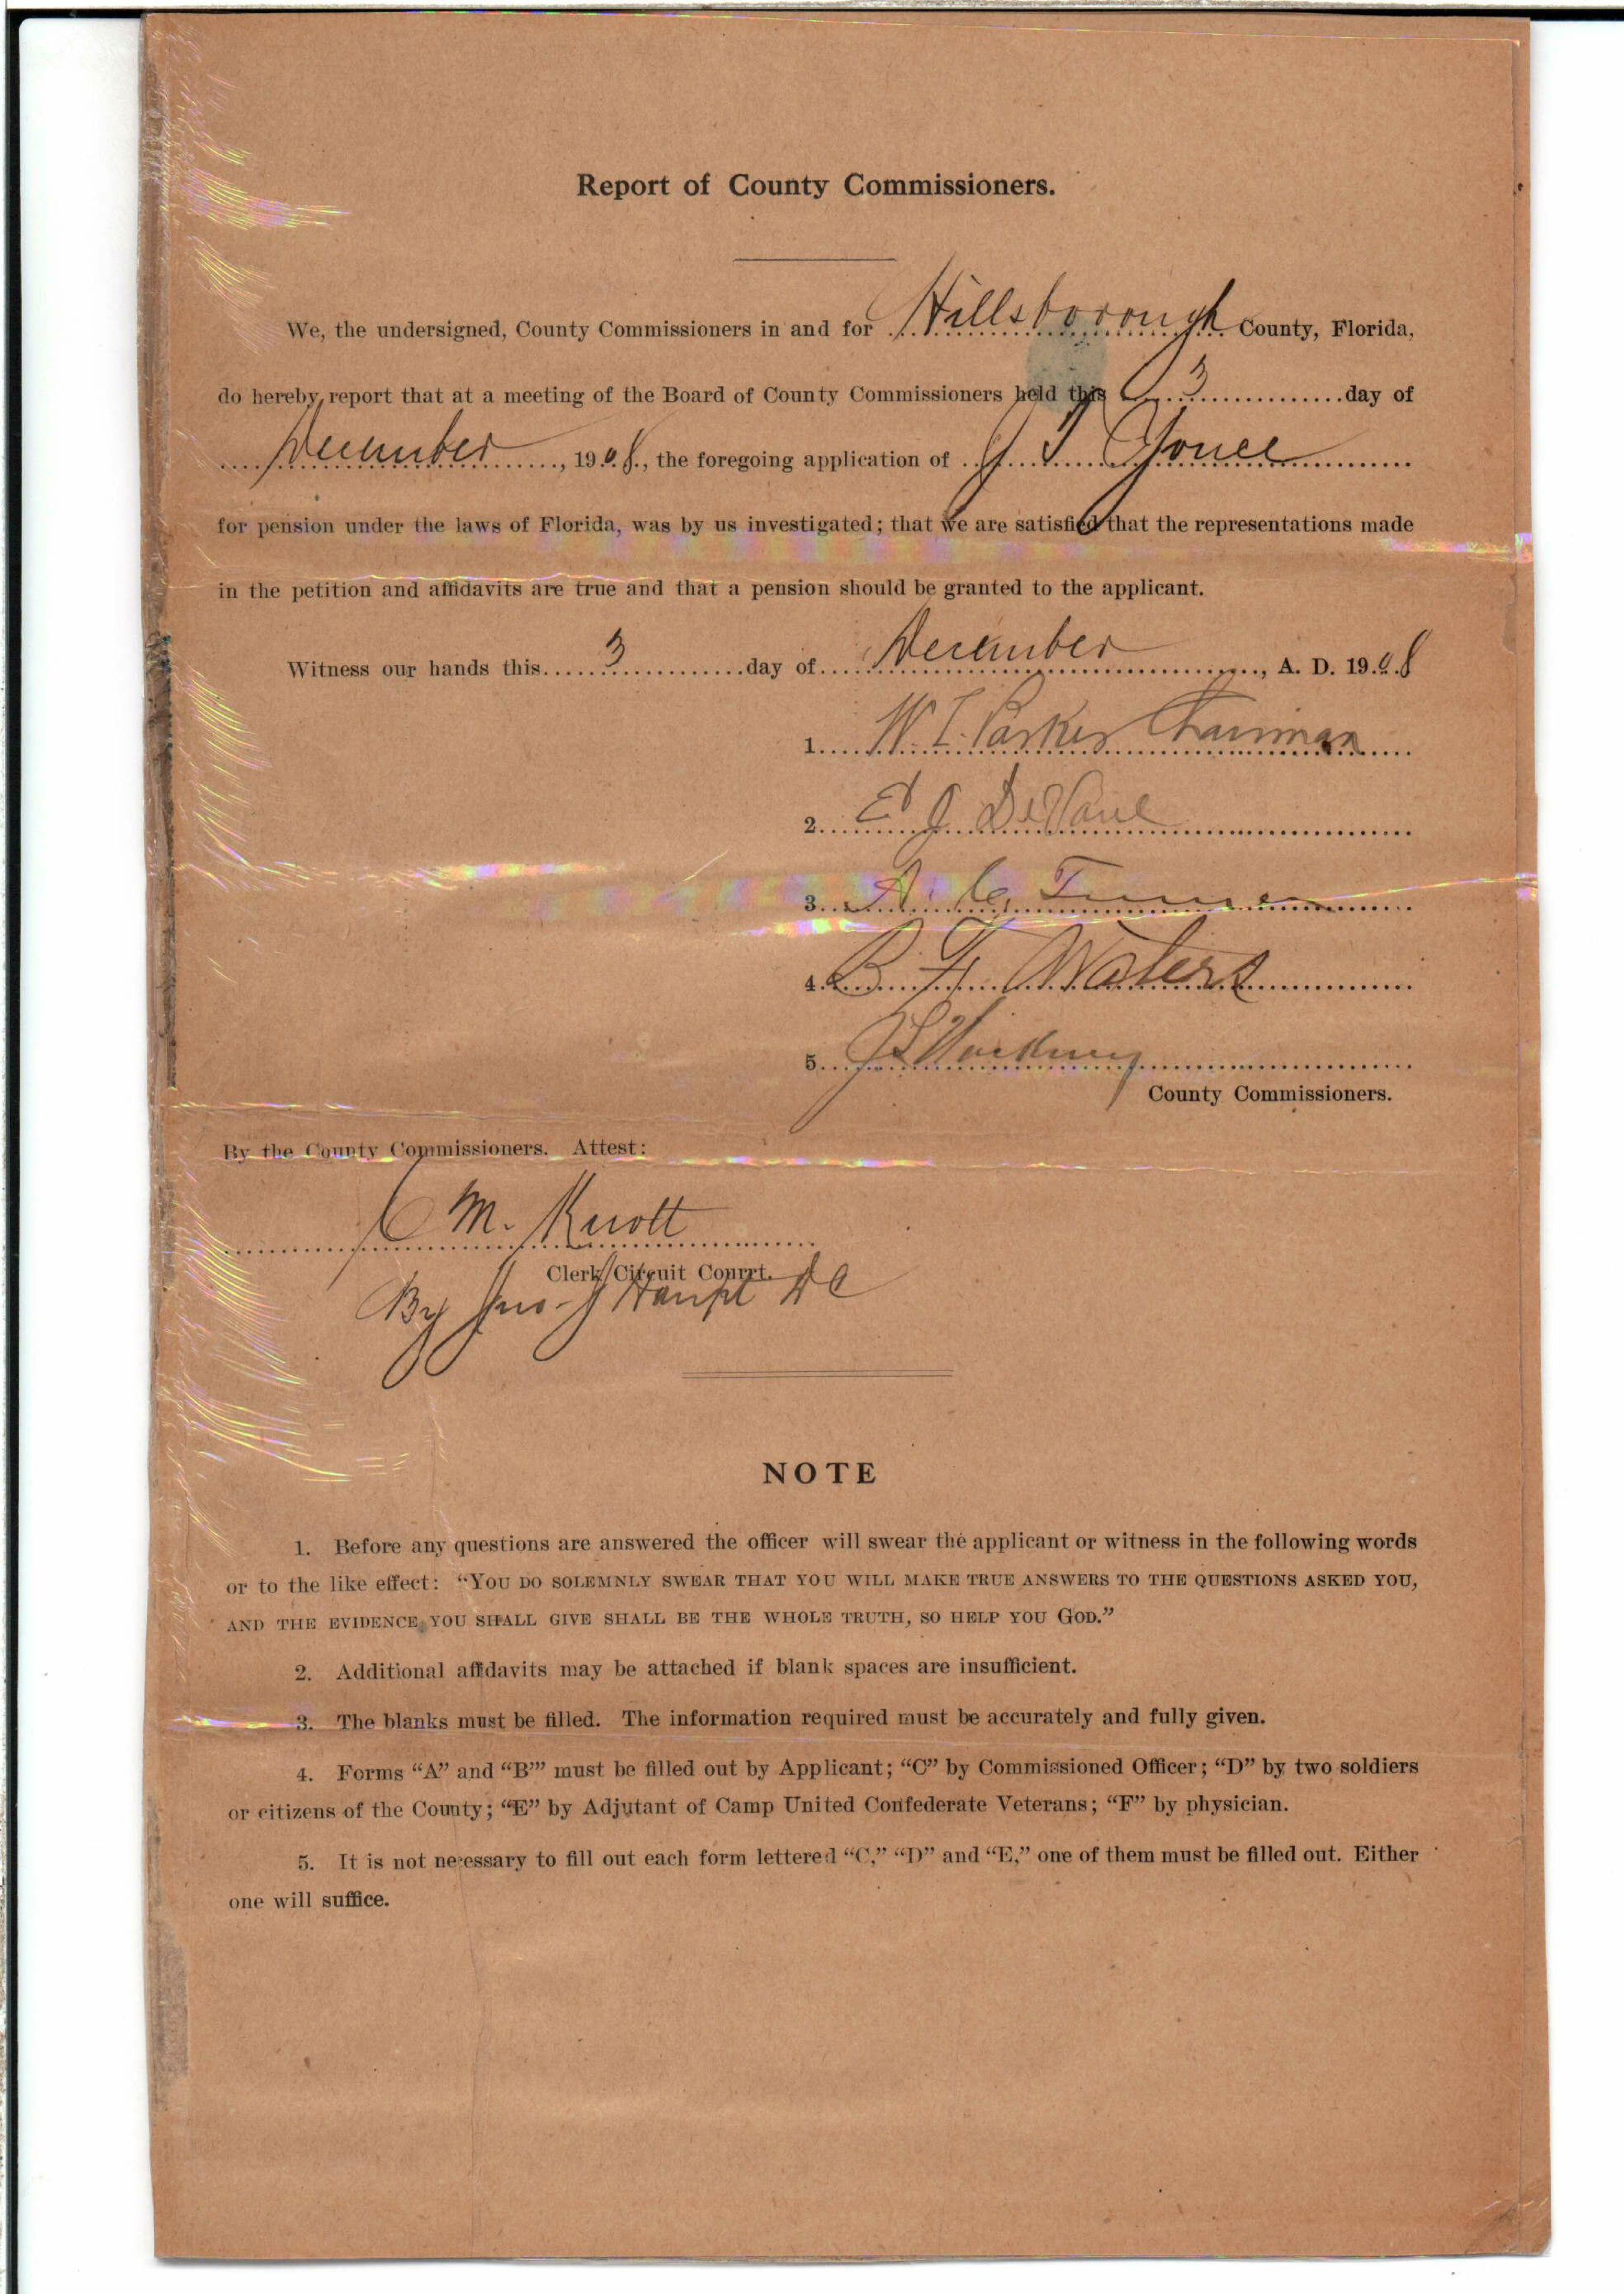 Report of County Commissioners.
We, the undersigned, County Commissioners in and for Hillsborough County, Florida,
do hereby report that at a meeting of the Board of County Commissioners held this 3 day of
December, 1908, the foregoing application of
for pension under the laws of Florida, was by us investigated; that we are satisfied that the representations made
in the petition and affidavits are true and that a pension should be granted to the applicant.
Witness our hands this 3 day of December, A. D. 1908
1. W. T. Parker Chairman
2. E J DeVane
3. A. C. Turner
4. B. F. Waters
5.
County Commissioners.
By the County Commissioners. Attest:
M. Knott
Clerk Circuit Courrt.
By Jno. Haupt DC
NOTE
1. Before any questions are answered the officer will swear the applicant or witness in the following words
or to the like effect: “YOU DO SOLEMNLY SWEAR THAT YOU WILL MAKE TRUE ANSWERS TO THE QUESTIONS ASKED YOU,
AND THE EVIDENCE YOU SHALL GIVE SHALL BE THE WHOLE TRUTH, SO HELP YOU GOD.”
2. Additional affidavits may be attached if blank spaces are insufficient.
3. The blanks must be filled. The information required must be accurately and fully given.
4. Forms “A” and “B’” must be filled out by Applicant; “C” by Commissioned Officer; “D” by two soldiers
or citizens of the County; “E” by Adjutant of Camp United Confederate Veterans; “F” by physician.
5. It is not necessary to fill out each form lettered “C,” “D” and “E,” one of them must be filled out. Either
one will suffice.